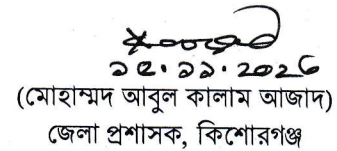 ১৫.১১.2026
(মোহাম্মদ আবুল কালাম আজাদ)
জেলা প্রশাসক, কিশোরগঞ্জ